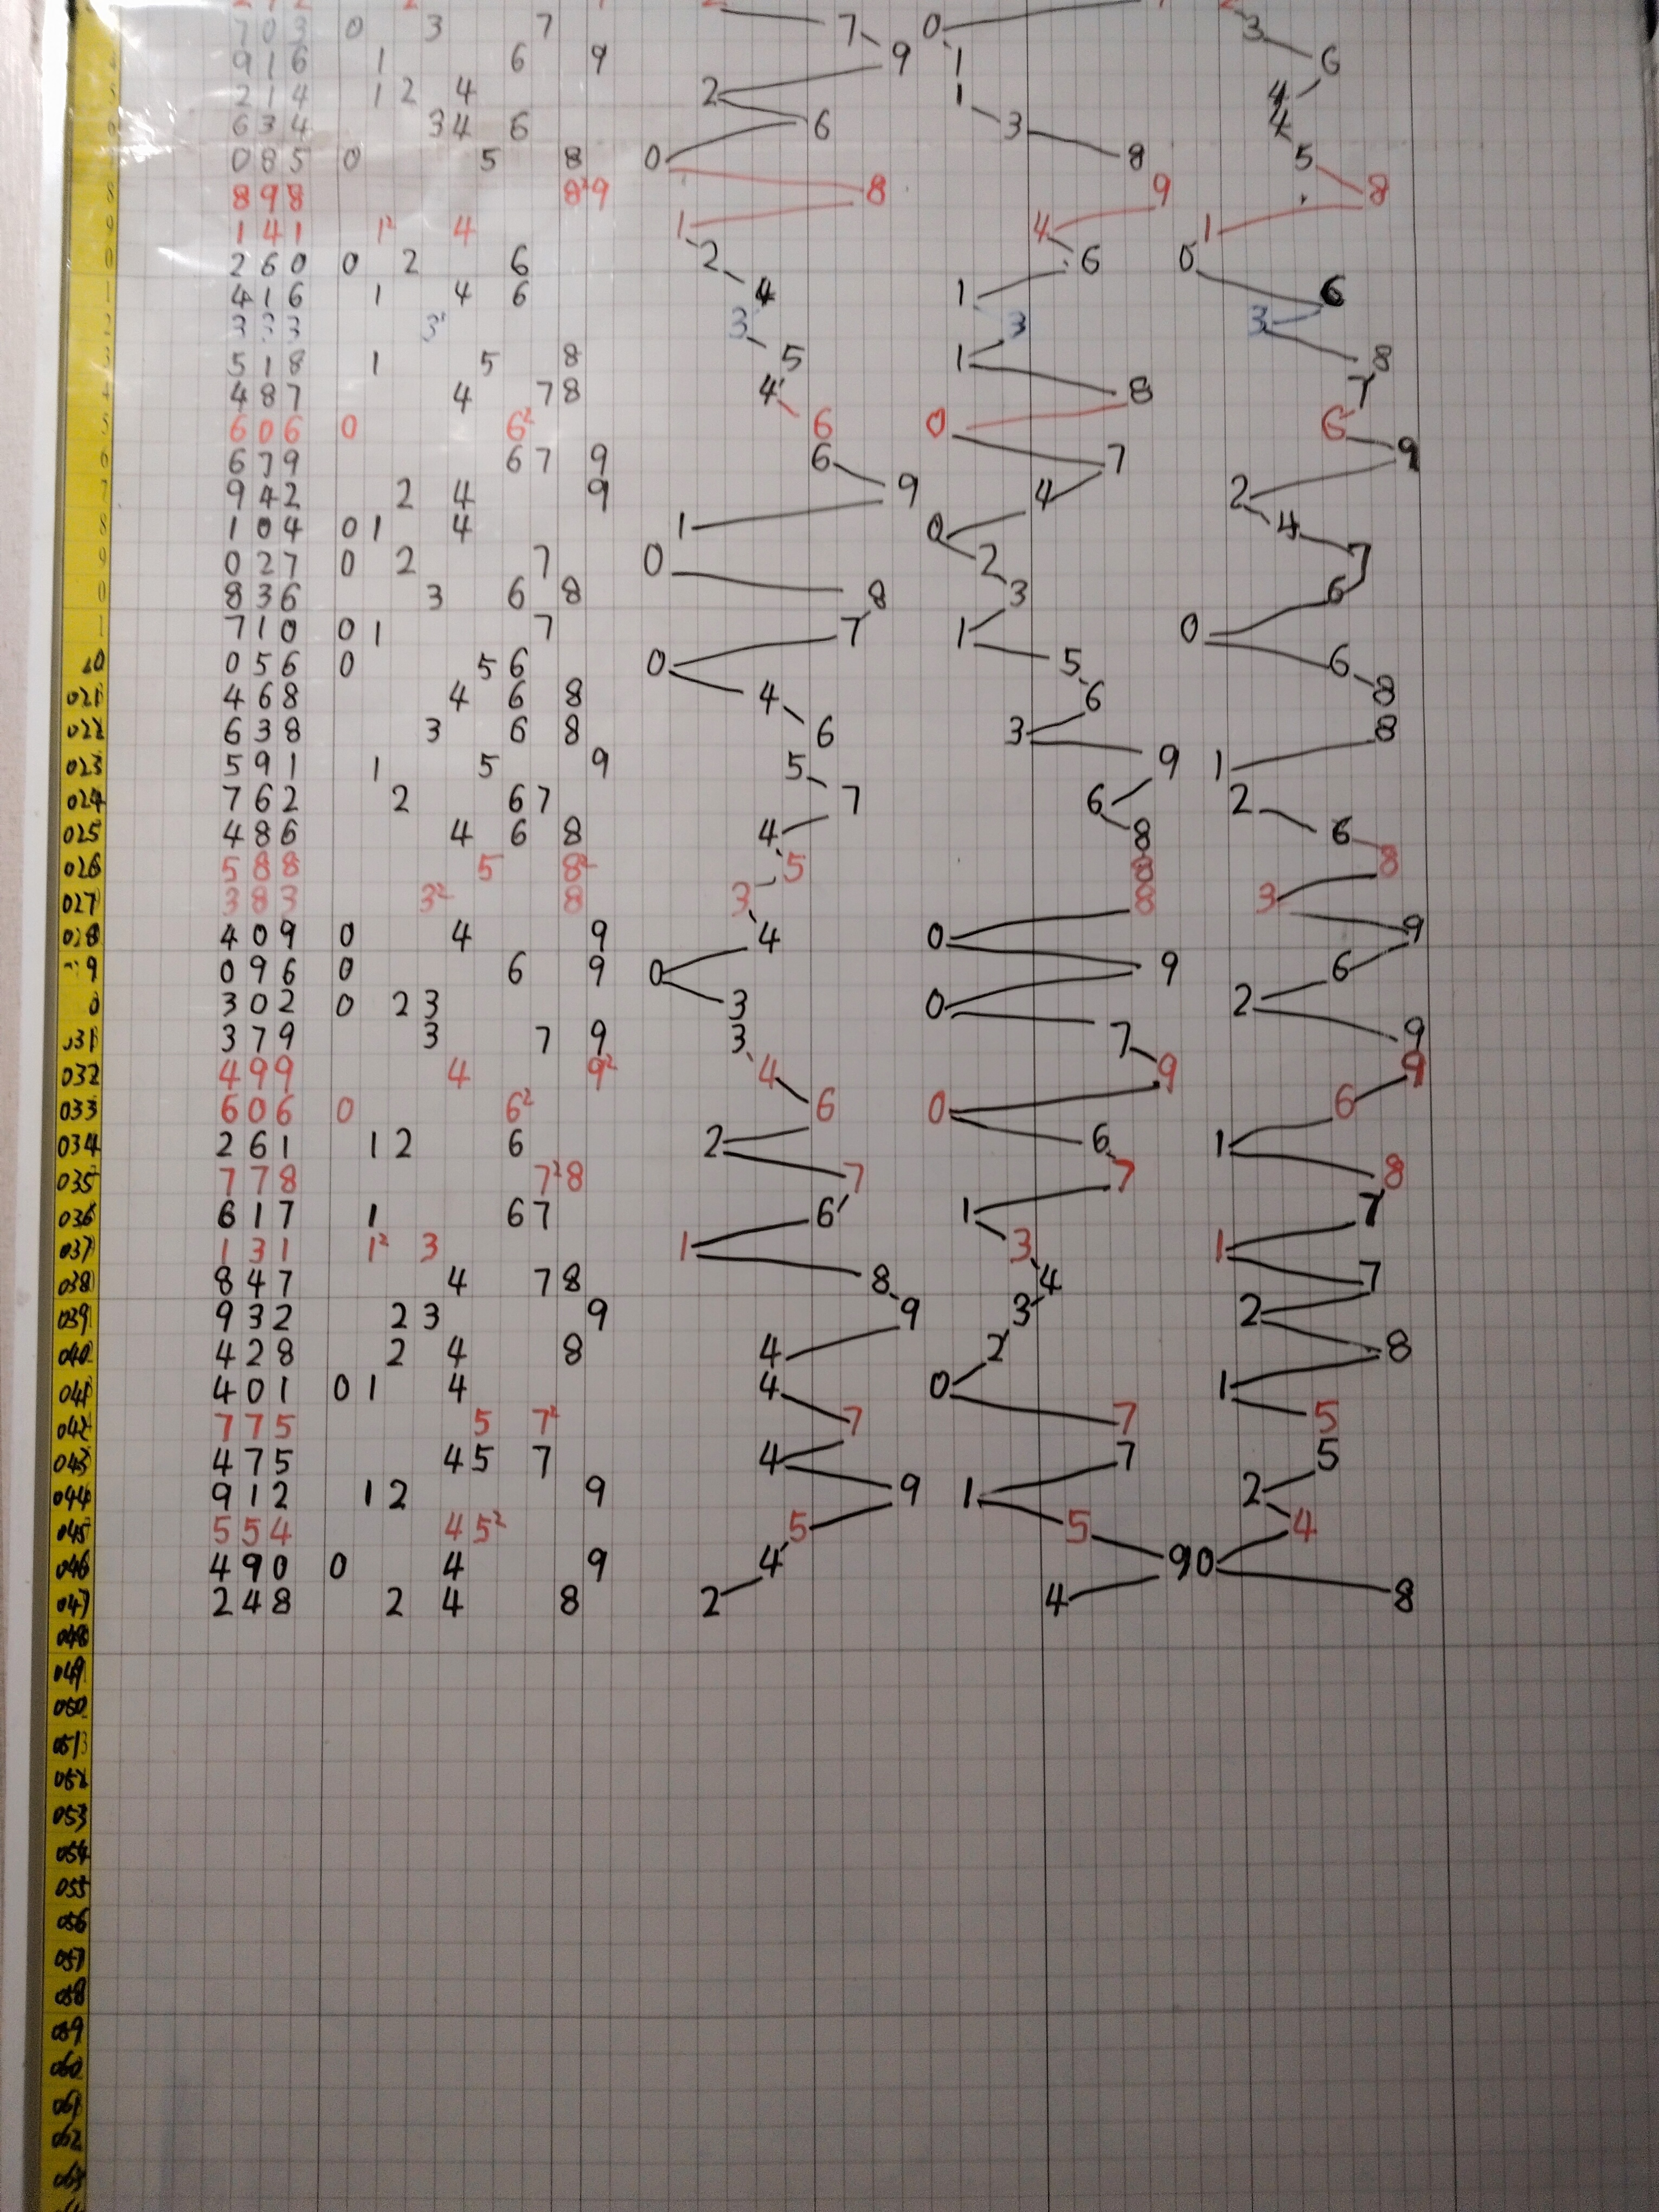 703 0 3 7 7 0 3
916 1 6 9 9 1 6
214 1 2 4 2 1 4
634 3 4 6 6 3 4
085 0 5 8 0 8 5
8 898 8² 9 8 9 8
9 141 1² 4 1 4 1
0 260 0 2 6 2 6 0
1 416 1 4 6 4 1 6
2 333 3 3 3
3 518 1 5 8 5 1 8
4 487 4 7 8 4 8 7
5 606 0 6² 6 0 6
6 679 6 7 9 6 7 9
7 942 2 4 9 9 4 2
8 104 0 1 4 1 0 4
9 027 0 2 7 0 2 7
0 836 3 6 8 8 3 6
1 710 0 1 7 7 1 0
20 056 0 5 6 0 5 6
021 468 4 6 8 4 6 8
022 638 3 6 8 6 3 8
023 591 1 5 9 5 9 1
024 762 2 6 7 7 6 2
025 486 4 6 8 4 8 6
026 588 5 8² 5 8 8
027 383 3² 8 3 8 3
028 409 0 4 9 4 0 9
9 096 0 6 9 0 9 6
0 302 0 2 3 3 0 2
031 379 3 7 9 3 7 9
032 499 4 9² 4 9 9
033 606 0 6² 6 0 6
034 261 1 2 6 2 6 1
035 778 7² 8 7 7 8
036 617 1 6 7 6 1 7
037 131 1² 3 1 3 1
038 847 4 7 8 8 4 7
039 932 2 3 9 9 3 2
040 428 2 4 8 4 2 8
041 401 0 1 4 4 0 1
042 775 5 7² 7 7 5
043 475 4 5 7 4 7 5
044 912 1 2 9 9 1 2
045 554 4 5² 5 5 4
046 490 0 4 9 4 9 0
047 248 2 4 8 2 4 8
048
049
050
051
052
053
054
055
056
057
058
059
060
061
062
063